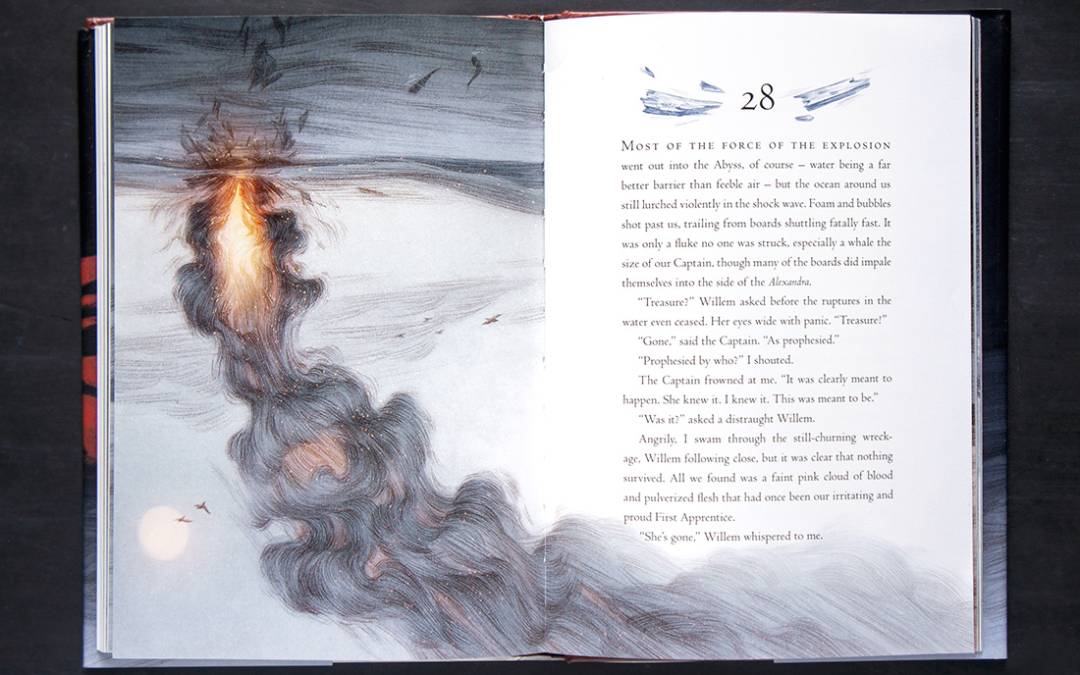 28
MOST OF THE FORCE OF THE EXPLOSION
went out into the Abyss, of course – water being a far
better barrier than feeble air – but the ocean around us
still lurched violently in the shock wave. Foam and bubbles
shot past us, trailing from boards shuttling fatally fast. It
was only a fluke no one was struck, especially a whale the
size of our Captain, though many of the boards did impale
themselves into the side of the Alexandra.
“Treasure?” Willem asked before the ruptures in the
water even ceased. Her eyes wide with panic. “Treasure!”
“Gone,” said the Captain. “As prophesied.”
“Prophesied by who?” I shouted.
The Captain frowned at me. “It was clearly meant to
happen. She knew it. I knew it. This was meant to be.”
“Was it?” asked a distraught Willem.
Angrily, I swam through the still-churning wreck-
age, Willem following close, but it was clear that nothing
survived. All we found was a faint pink cloud of blood
and pulverized flesh that had once been our irritating and
proud First Apprentice.
“She’s gone,” Willem whispered to me.